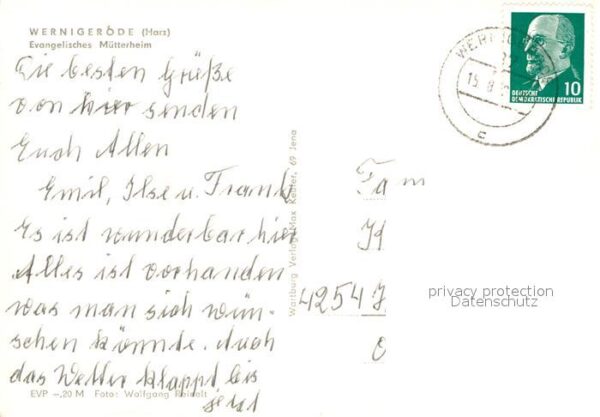 WERNIGERÖDE (Harz)
Evangelisches Mütterheim
Die besten Grüße
von hier senden
Euch Allen
Emil, Ilse u. Frank
Es ist wunderbar hier
Alles ist vorhanden
was man sich wün-
schen könnte. Auch
das Wetter klappt bis
jetzt
EVP -,20 M Foto: Wolfgang Reinelt
Wartburg Verlag Max Keßler, 69 Jena
Fam
4254
10
DEUTSCHE
DEMOKRATISCHE REPUBLIK
15.8
c
privacy protection
Datenschutz